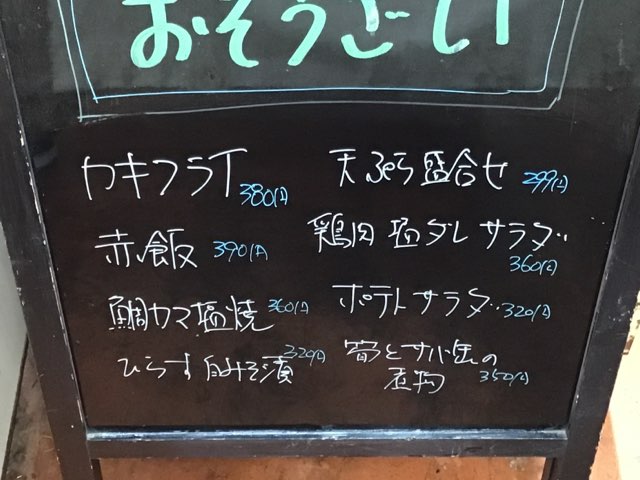 おそうざい
カキフライ 380円
赤飯 390円
鯛カマ塩焼 360円
ひらす白みそ漬 320円
天ぷら盛合せ 299円
鶏肉塩ダレサラダ
360円
ポテトサラダ 320円
筍とサバ缶の
煮物 350円